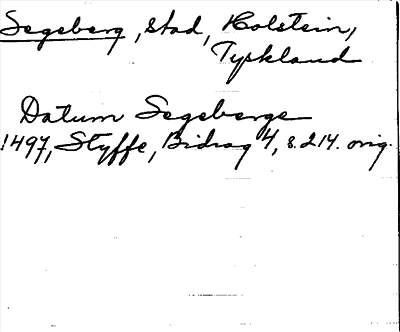 Segeberg, stad, Holstein,
Tyskland
Datum Segeberge
1497, Styffe, Bidrag 4, s. 214. orig.